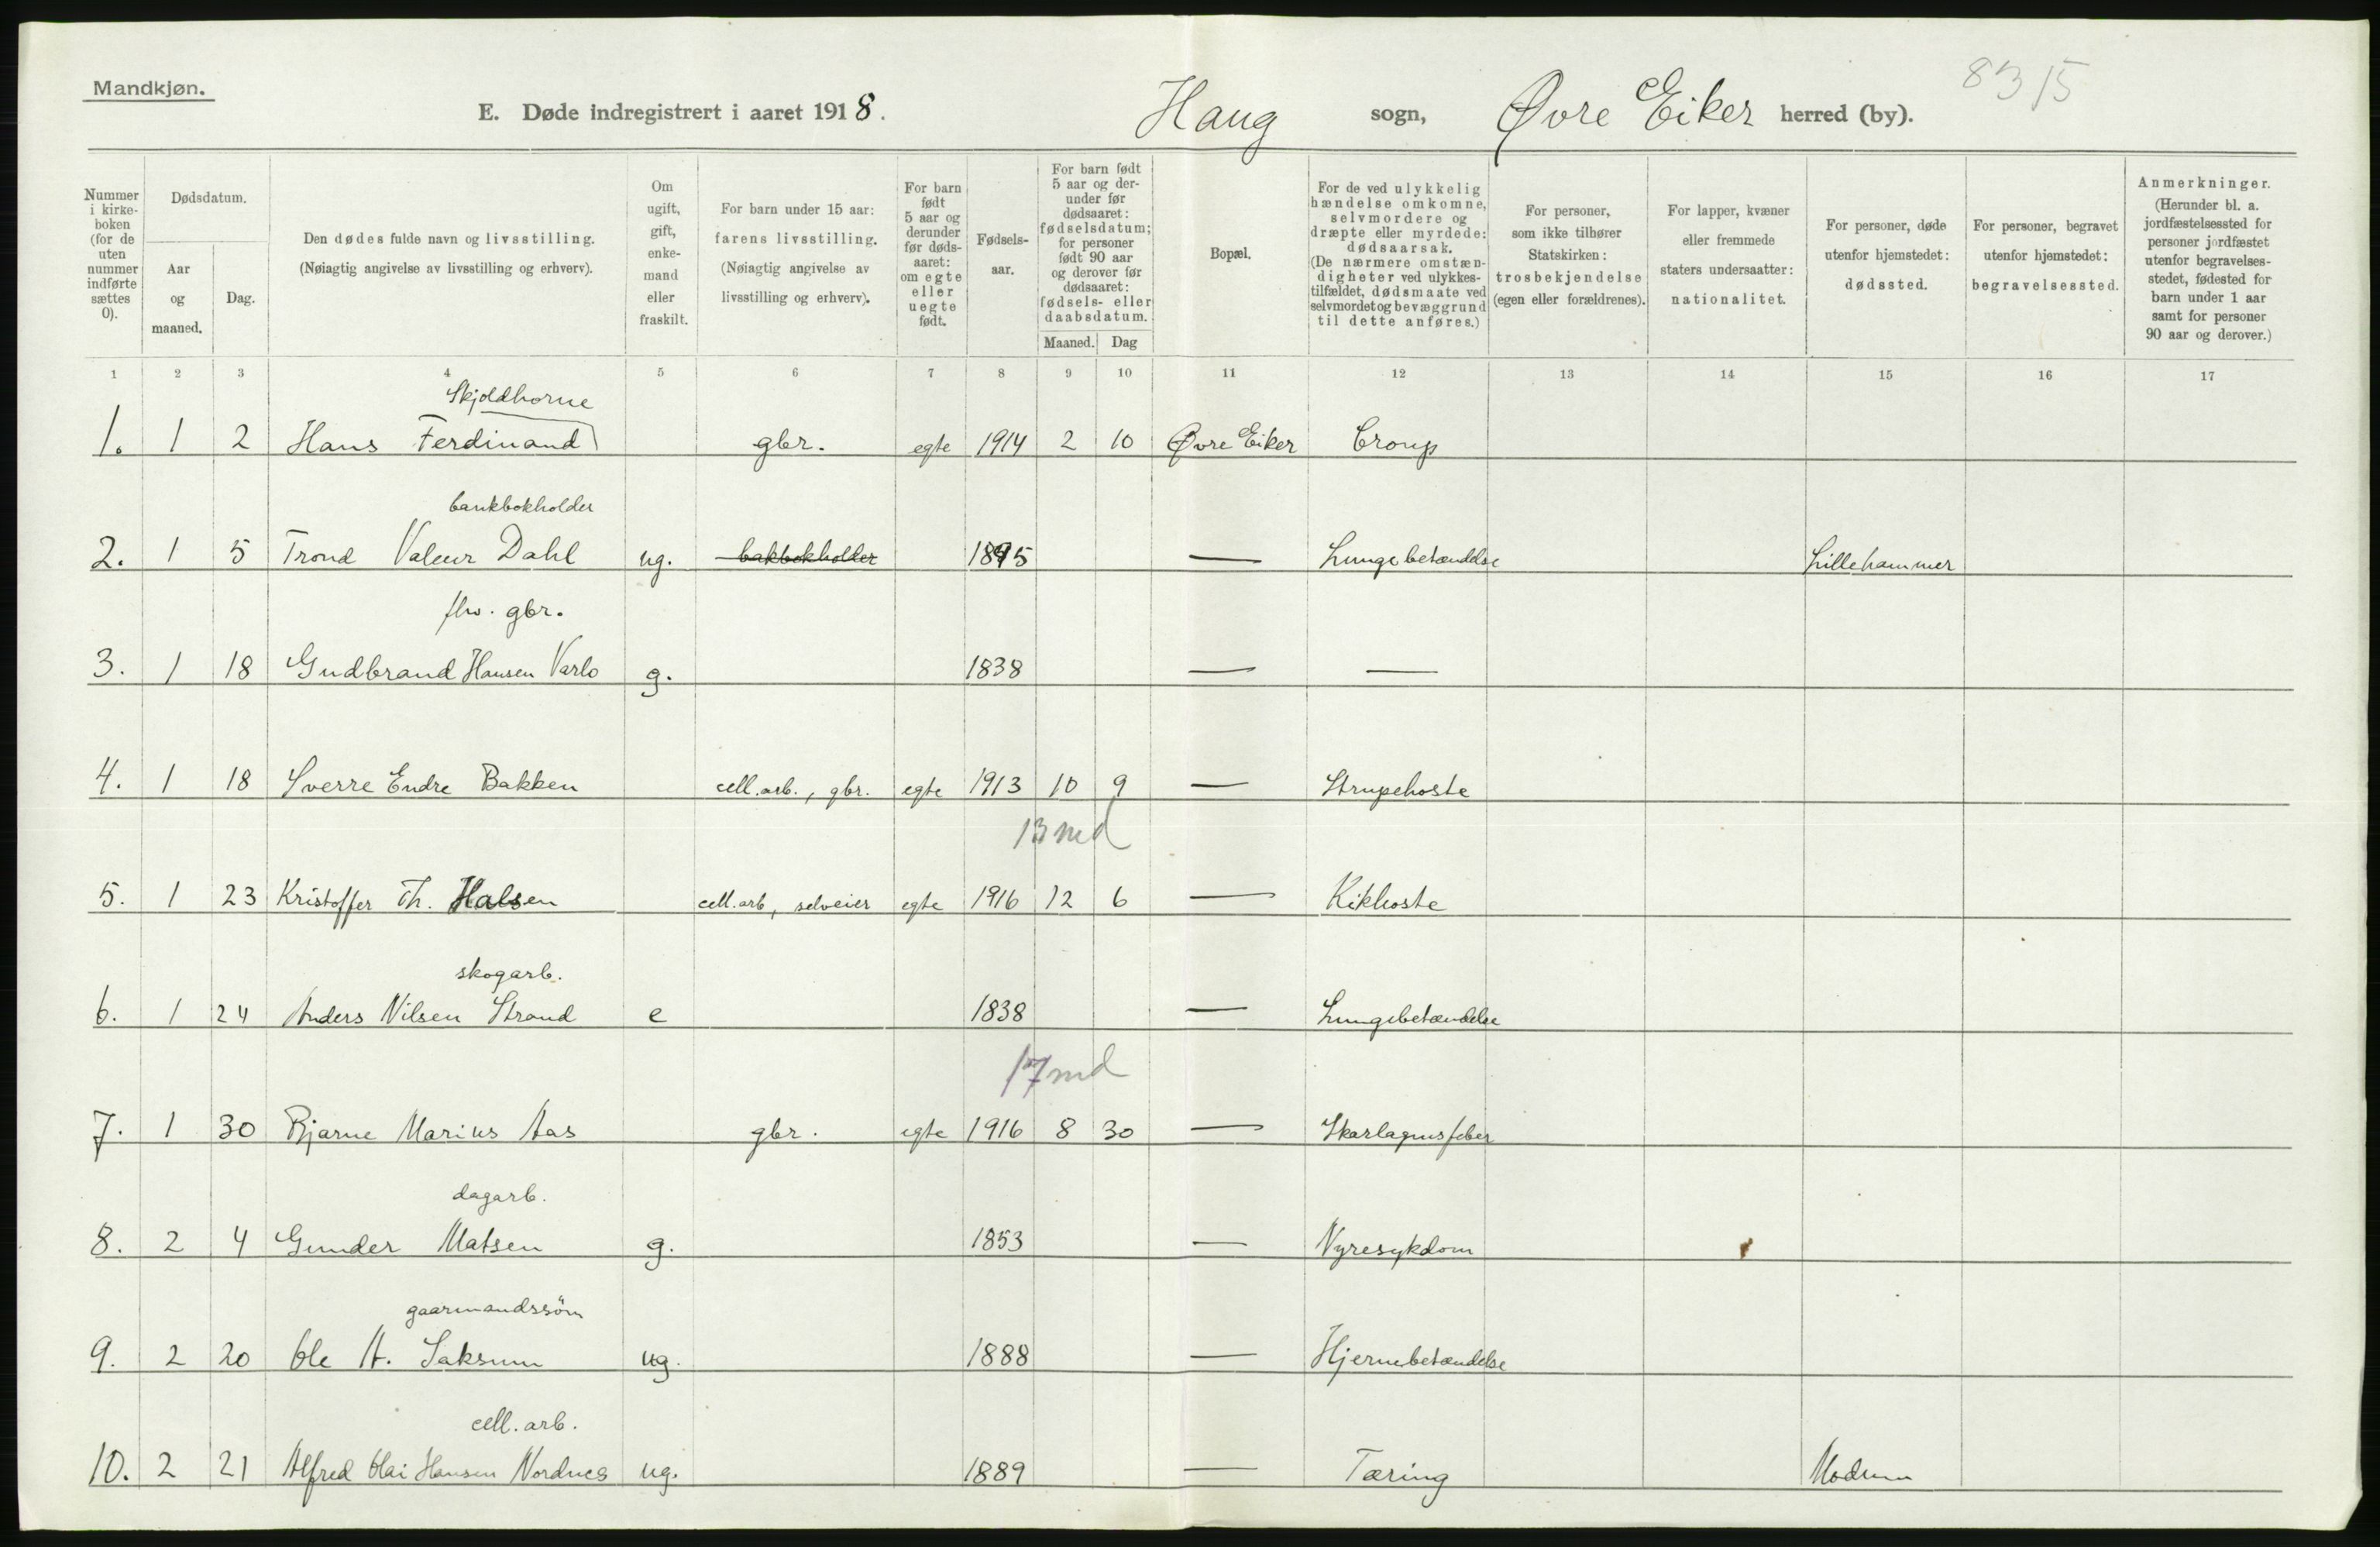 Mandkjøn.
8315
E. Døde indregistrert i aaret 1918. Haug sogn, Øvre Eiker herred (by).
Nummer i kirke-boken (for de uten nummer indførte sættes 0).
Dødsdatum.
Aar og maaned.
Dag.
Den dødes fulde navn og livsstilling. (Nøiagtig angivelse av livsstilling og erhverv).
Om ugift, gift, enke-mand eller fraskilt.
For barn under 15 aar: farens livsstilling. (Nøiagtig angivelse av livsstilling og erhverv).
For barn født 5 aar og derunder før døds-aaret: om egte eller uegte født.
Fødsels-aar.
For barn født 5 aar og der-under før dødsaaret: fødselsdatum; for personer født 90 aar og derover før dødsaaret: fødsels- eller daabsdatum.
Maaned. Dag
Bopæl.
For de ved ulykkelig hændelse omkomne, selvmordere og dræpte eller myrdede: dødsaarsak. (De nærmere omstæn-digheter ved ulykkes-tilfældet, dødsmaate ved selvmordet og bevæggrund til dette anføres.)
For personer, som ikke tilhører Statskirken: trosbekjendelse (egen eller forældrenes).
For lapper, kvæner eller fremmede staters undersaatter: nationalitet.
For personer, døde utenfor hjemstedet: dødssted.
For personer, begravet utenfor hjemstedet: begravelsessted.
Anmerkninger. (Herunder bl. a. jordfæstelsessted for personer jordfæstet utenfor begravelses-stedet, fødested for barn under 1 aar samt for personer 90 aar og derover.)
1 2 3 4 5 6 7 8 9 10 11 12 13 14 15 16 17
Skjoldhorne
1. 1 2 Hans Ferdinand gbr. egte 1914 2 10 Øvre Eiker Croup
bankbokholder
2. 1 5 Trond Valeur Dahl ug. bakbokholder 1895 — Lungebetændelse Lillehammer
fhv. gbr.
3. 1 18 Gudbrand Hansen Varlo g. 1838 — —
4. 1 18 Sverre Endre Bakken cell.arb., gbr. egte 1913 10 9 — Strupehoste
13 md
5. 1 23 Kristoffer Th. Halsen cell.arb, selveier egte 1916 12 6 — Kikhoste
skogarb.
6. 1 24 Anders Nilsen Strand e 1838 — Lungebetændelse
17 md
7. 1 30 Bjarne Marius Aas gbr. egte 1916 8 30 — Skarlagensfeber
dagarb.
8. 2 4 Gunder Matsen g. 1853 — Nyresykdom
gaarmandssøn
9. 2 20 Ole A. Saksum ug. 1888 — Hjernebetændelse
cell. arb.
10. 2 21 Alfred Olai Hansen Nordnes ug. 1889 — Tæring Modum